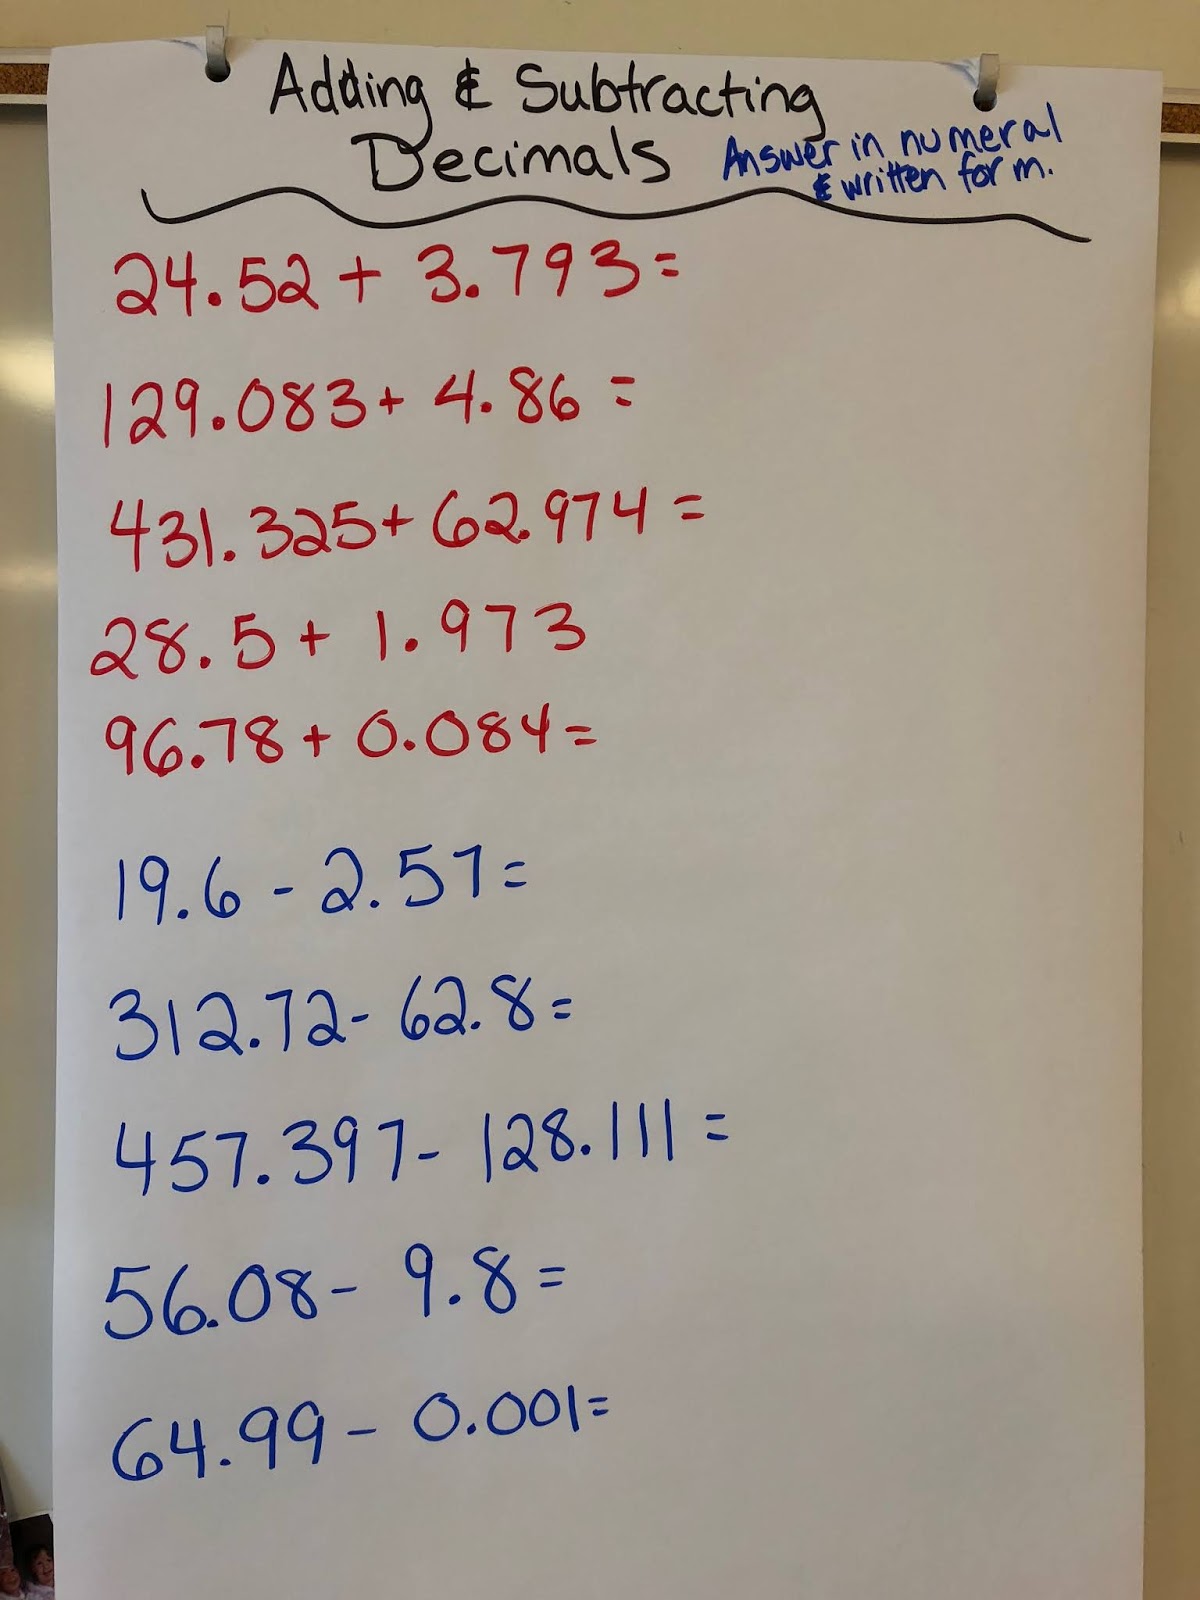 Adding & Subtracting
Decimals
Answer in numeral
& written form.
24.52 + 3.793 =
129.083 + 4.86 =
431.325 + 62.974 =
28.5 + 1.973
96.78 + 0.084 =
19.6 - 2.57 =
312.72 - 62.8 =
457.397 - 128.111 =
56.08 - 9.8 =
64.99 - 0.001 =